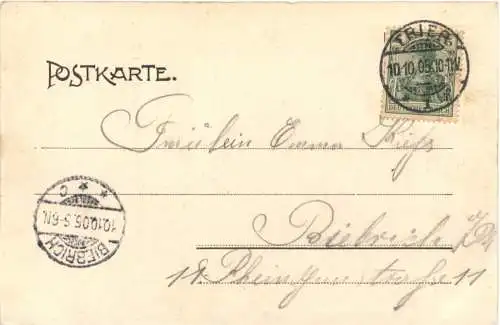 TRIER
10.10.05.10-11V.
1
POSTKARTE.
Fräulein Emma
Biebrich a/Rh
11 Rheingaustraße 11
BIEBRICH
10.10.05.5-6N.
* c *